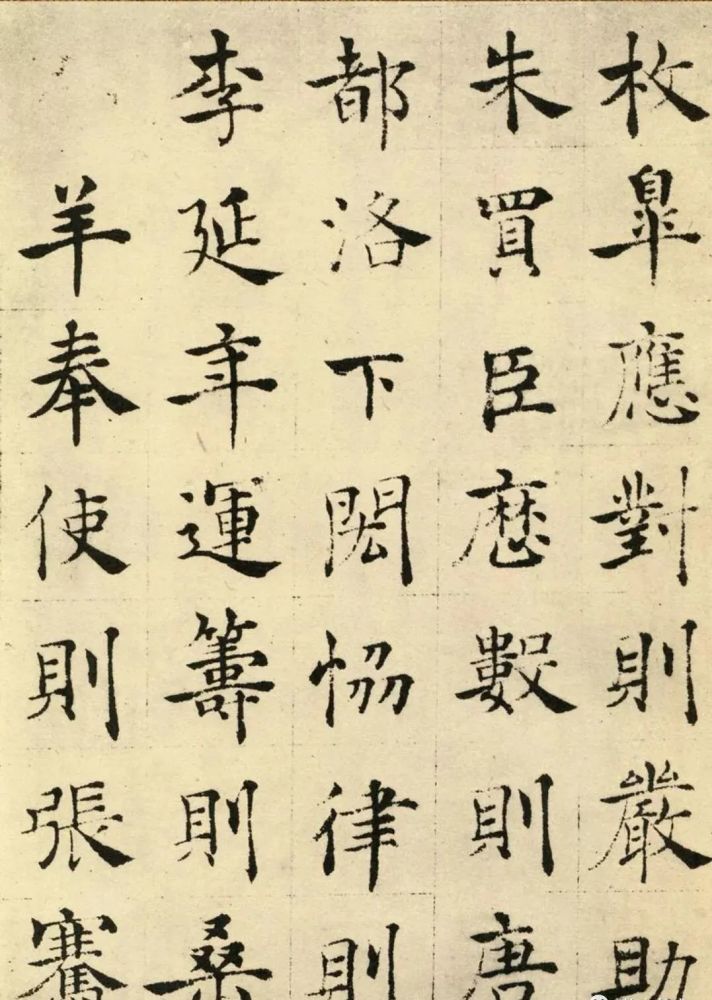 枚皐應對則嚴助
朱買臣厯數則唐
都洛下閎恊律則
李延年運籌則桑
羊奉使則張騫